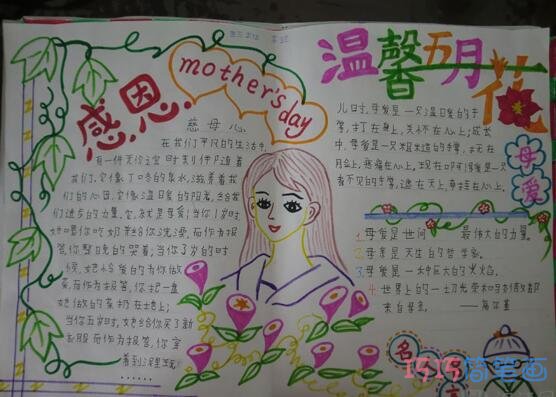 感恩.
mother's day
慈母心
在我们平凡的生活中,
有一件无价之宝时刻伴随着
我们,它像丁冬的泉水,滋养着我
们的心田,它像温暖的阳光,给我
们进步的力量,它,就是母爱;当你1岁时
她喂你吃奶并给你洗澡,而作为报
答,你整晚的哭着;当你了岁的时
候,她怜爱的为你做
菜,而作为报答,你把一盘
她做的菜扔在地上;
当你五岁时,她给你买了新
衣服而作为报答,你穿
着到泥里玩
......
温馨五月花
儿时,母爱是一只温暖的手
掌,打在身上,关怀在心上;成长
中,母爱是一只粗糙的手掌,
心上,疼痛在心上,现在母爱是一只
看不见的手掌,远在天上,牵挂在心上,
母爱
1.母爱是世间最伟大的力量.
2.母亲是天生的哲学家.
3.母爱是一种巨大的火焰.
4.世界上的一切光荣和骄傲都
来自母亲. ——高尔基
名言
1515简笔画